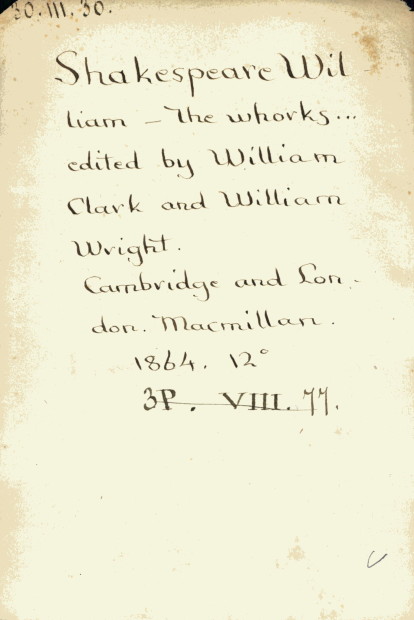 30.III.30.
Shakespeare Wil
liam – The whorks...
edited by William
Clark and William
Wright.
Cambridge and Lon-
don. Macmillan.
1864. 12°
3P. VIII. 77.